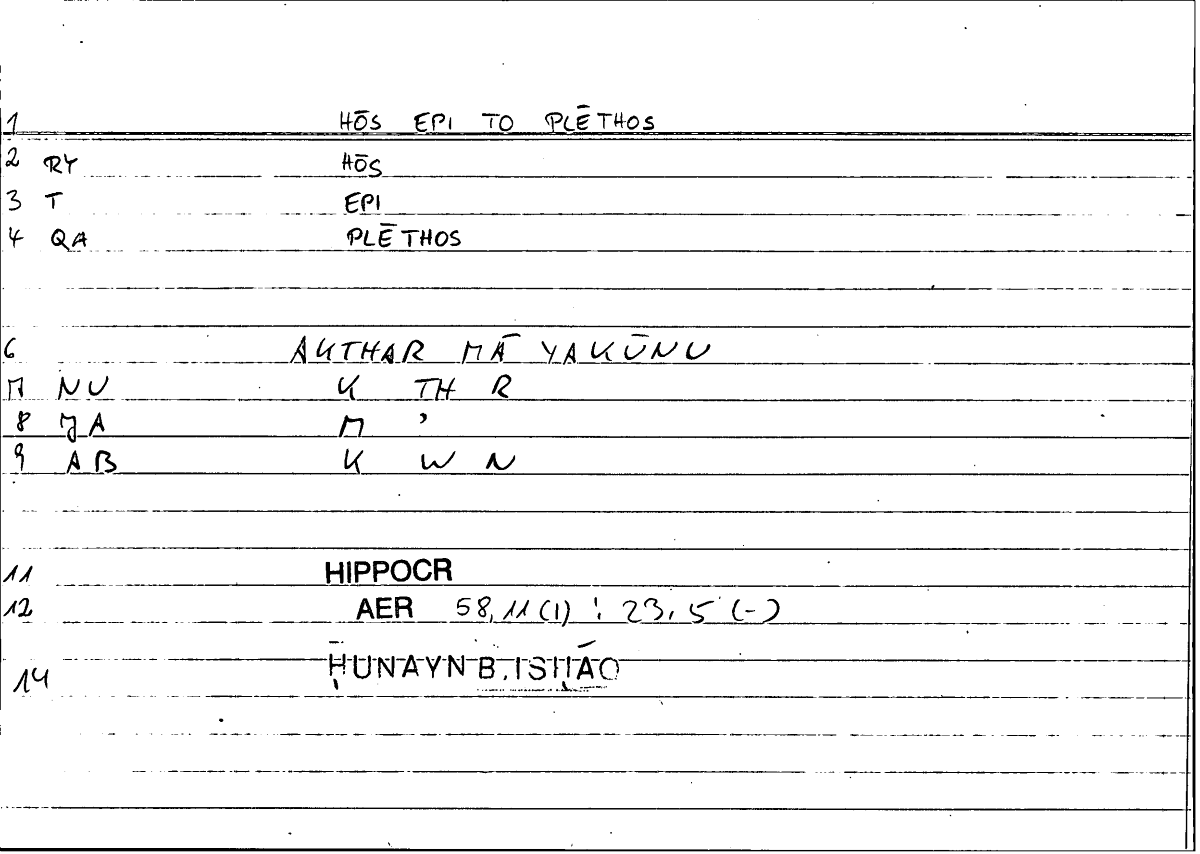 1 HŌS EPI TO PLĒTHOS
2 RY HŌS
3 T EPI
4 QA PLĒTHOS
6 AKTHAR MĀ YAKŪNU
7 NU K TH R
8 JA M ʾ
9 AB K W N
11 HIPPOCR
12 AER 58,11(1) : 23,5 (-)
14 ḤUNAYN B. ISḤĀQ